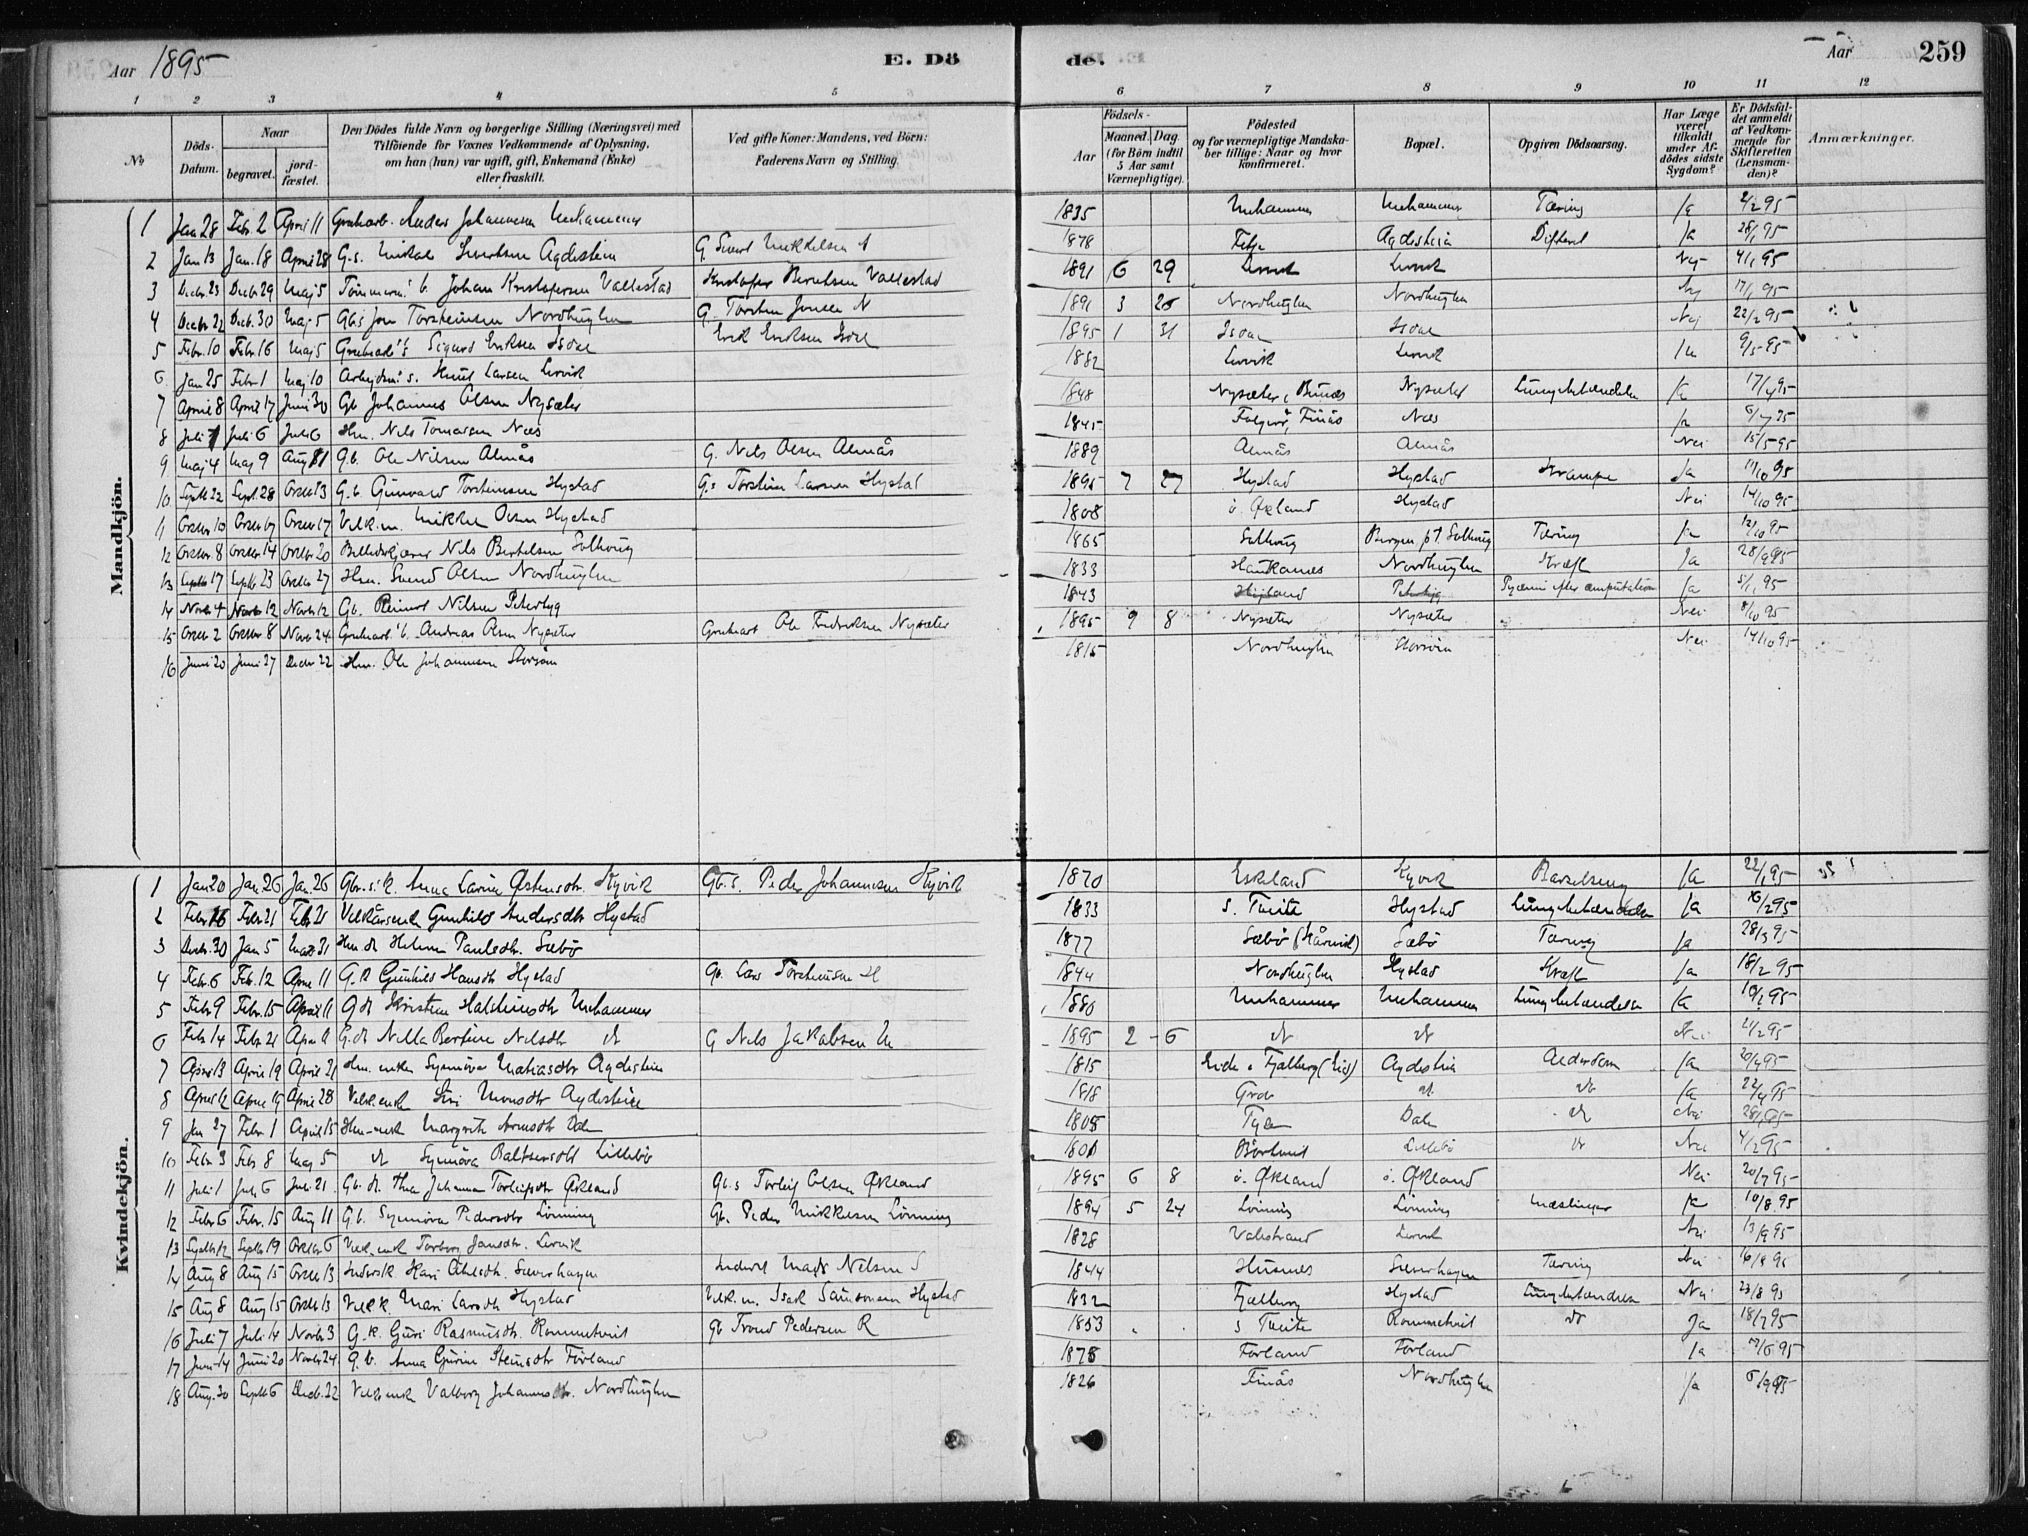 Aar 1895 E. Döde. Aar 259
1 2 3 4 5 6 7 8 9 10 11 12
No
Döds-Datum.
Naar
begravet.
jordfæstet.
Den Dödes fulde Navn og borgerlige Stilling (Næringsvei) med Tilföiende for Voxnes Vedkommende af Oplysning, om han (hun) var ugift, gift, Enkemand (Enke) eller fraskilt.
Ved gifte Koner: Mandens, ved Börn: Faderens Navn og Stilling.
Födsels-
Aar
Maaned. Dag.
(for Börn indtil 5 Aar samt Værnepligtige).
Födested og for værnepligtige Mandskaber tillige: Naar og hvor konfirmeret.
Bopæl.
Opgiven Dödsaarsag.
Har Læge været tilkaldt under Afdödes sidste Sygdom?
Er Dödsfaldet anmeldt af Vedkommende for Skifteretten (Lensmanden)?
Anmærkninger.
Mandkjön.
1 Jan 28 Febr. 2 April 11 Gaardarb. Anders Johannesen 1835 Tæring Ja 2/2 95
2 Jan 13 Jan. 18 April 28 G.s. Mikal Sivertsen Agdestein G. Sivert Mikkelsen A 1878 Fitje Agdestein Difterit Ja 28/1 95
3 Decbr. 23 Decbr 29 Maj 5 Johan Kristofersen Vallestad Kristofer Berentsen Vallestad 1891 6 29 Lervik Lervik Nej
4 Decbr 22 Decb. 30 Maj 5 Gb.s Jon Torsteinsen Nordhuglen G. Torsten Jonsen N 1891 3 26 Nordhuglen Nordhuglen Nej 17/1 95
5 Febr. 10 Febr 16 Maj 5 Sigurd Eriksen Isdal Erik Eriksen Isdal 1895 1 31 Isdal Isdal Nej 22/2 95
6 Jan 25 Febr 1 Maj 10 Arbejdm. s. Knut Larsen Lervik 1882 Lervik Lervik Ja 9/5 95
7 April 8 April 17 Juni 30 Gb Johannes Olsen Nysæter 1848 Nysæter Nysæter Lungebetændelse Ja 17/4 95
8 Juli 1 Juli 6 Juli 6 Hm. Nils Tomassen Næs 1845 Finås Næs Ja
9 Maj 4 Maj 9 Aug 11 G.b. Ole Nilsen Almås G. Nils Olsen Almås 1889 Almås Almås Nei 15/5 95
10 Septb 22 Sept. 28 Octbr 13 G.b. Gunvald Torsteinsen Hystad G.s Torstein Larsen Hystad 1895 7 27 Hystad Hystad Krampe Ja 11/10 95
11 Octbr 10 Octbr 17 Octbr 17 Velk.m. Mikkel Olsen Hystad 1808 ö. Økland Hystad Nei 14/10 95
12 Octbr. 8 Octbr. 14 Octbr 20 Billedskjærer Nils Bertelsen Solheug 1865 Solheug Bergen p.t. Solheug Tæring Ja 12/10 95
13 Septb 17 Septb 23 Octbr 27 Hm. Svend Olsen Nordhuglen 1833 Haukanes Nordhuglen Kræft Ja 28/9 95
14 Novb. 4 Novb 12 Novb. 12 Gb. Reinert Nilsen Peterbyg 1843 Pyæmi efter amputation Ja
15 Octbr 2 Octbr 8 Novb 24 Andreas Olsen Nysæter Ole Fredriksen Nysæter 1895 9 8 Nysæter Nysæter Nei 8/10 95
16 Juni 20 Juni 27 Decbr 22 Hm. Ole Johannesen Storsøen 1815 Nordhuglen Storsøen Nei 14/10 95
Kvindekjön.
1 Jan 20 Jan 26 Jan. 26 Gbr.s.k. Anna Larine Østensdtr. Kyvik Gb.s. Peder Johannesen Kyvik 1870 Eskeland Kyvik Barselseng Ja 22/1 95
2 Febr 16 Febr. 21 Feb 21 Gunhild Andersdtr Hystad 1833 S. Tveite Hystad Lungebetændelse Ja 16/2 95
3 Decbr. 30 Jan 5 Mars 31 Hm. d. Helene Paulsdtr. Sæbø 1877 Sæbø Sæbø Tæring Ja 28/3 95
4 Febr. 6 Febr. 12 April 11 G.k Gunhild Hansdtr Hystad Gb. Lars Torsteinsen H 1844 Nordhuglen Hystad Kræft Ja 18/2 95
5 Febr 9 Febr. 15 April 11 G.d. Kristine 1880 Lungebetændelse Ja
6 Febr 14 Febr. 21 April 11 G.d. Nella Bertine Nilsdtr do G Nils Jakobsen 1895 2 6 do do Nei 21/2 95
7 April 13 April 19 April 21 Hm. enke Synnøva Matiasdtr Agdestein 1815 Agdestein Alderdom Ja 20/4 95
8 April 12 April 19 April 28 Velk.enk Siri Monsdtr Agdestein 1818 do do Ja 22/4 95
9 Jan 27 Febr 1 April 15 Hm. enk Margrete Dale 1805 Dale do Nei 28/1 95
10 Febr. 3 Feb 8 Maj 5 do Synnøva Baltsersdtr Lillebø 1801 Lillebø do Nei 4/2 95
11 Juli 1 Juli 6 Juli 21 Gb. d. Johanna Torleifsdtr Økland Gb.s Torleif Olsen Økland 1895 6 8 ö. Økland ö. Økland Nei 20/7 95
12 Febr 6 Febr. 15 Aug 11 G.b. Synnøva Pedersdtr Lönning Gb. Peder Mikkelsen Lönning 1894 5 24 Lönning Lönning Mæslinger Ja 10/8 95
13 Septb 12 Septb 19 Octbr 6 Velk. enk Torborg Jansdtr. Lervik 1828 Valestrand Lervik Nei 13/9 95
14 Aug 8 Aug 15 Octbr 13 Kari Olsdtr. Mads Nilsen 1844 Husnes Tæring Nei 16/8 95
15 Aug 8 Aug 15 Octbr 13 Velk.k. Mari Larsdtr Hystad Velk.m. Isak Samsonsen Hystad 1832 Fjelberg Hystad Lungebetændelse Nei 23/8 95
16 Juli 7 Juli 14 Novb. 3 G.k. Guri Rasmusdtr. Rommetveit Gb Trond Pedersen R 1853 S Tveite Rommetveit do Ja 18/7 95
17 Juni 14 Juni 20 Novb. 24 G.b. Anna Gurine Steinsdtr Förland 1878 Förland Förland Ja
18 Aug. 30 Septb 6 Decb. 22 Velk enk Valborg Johannesdtr. Nordhuglen 1826 Finås Nordhuglen Ja 6/9 95